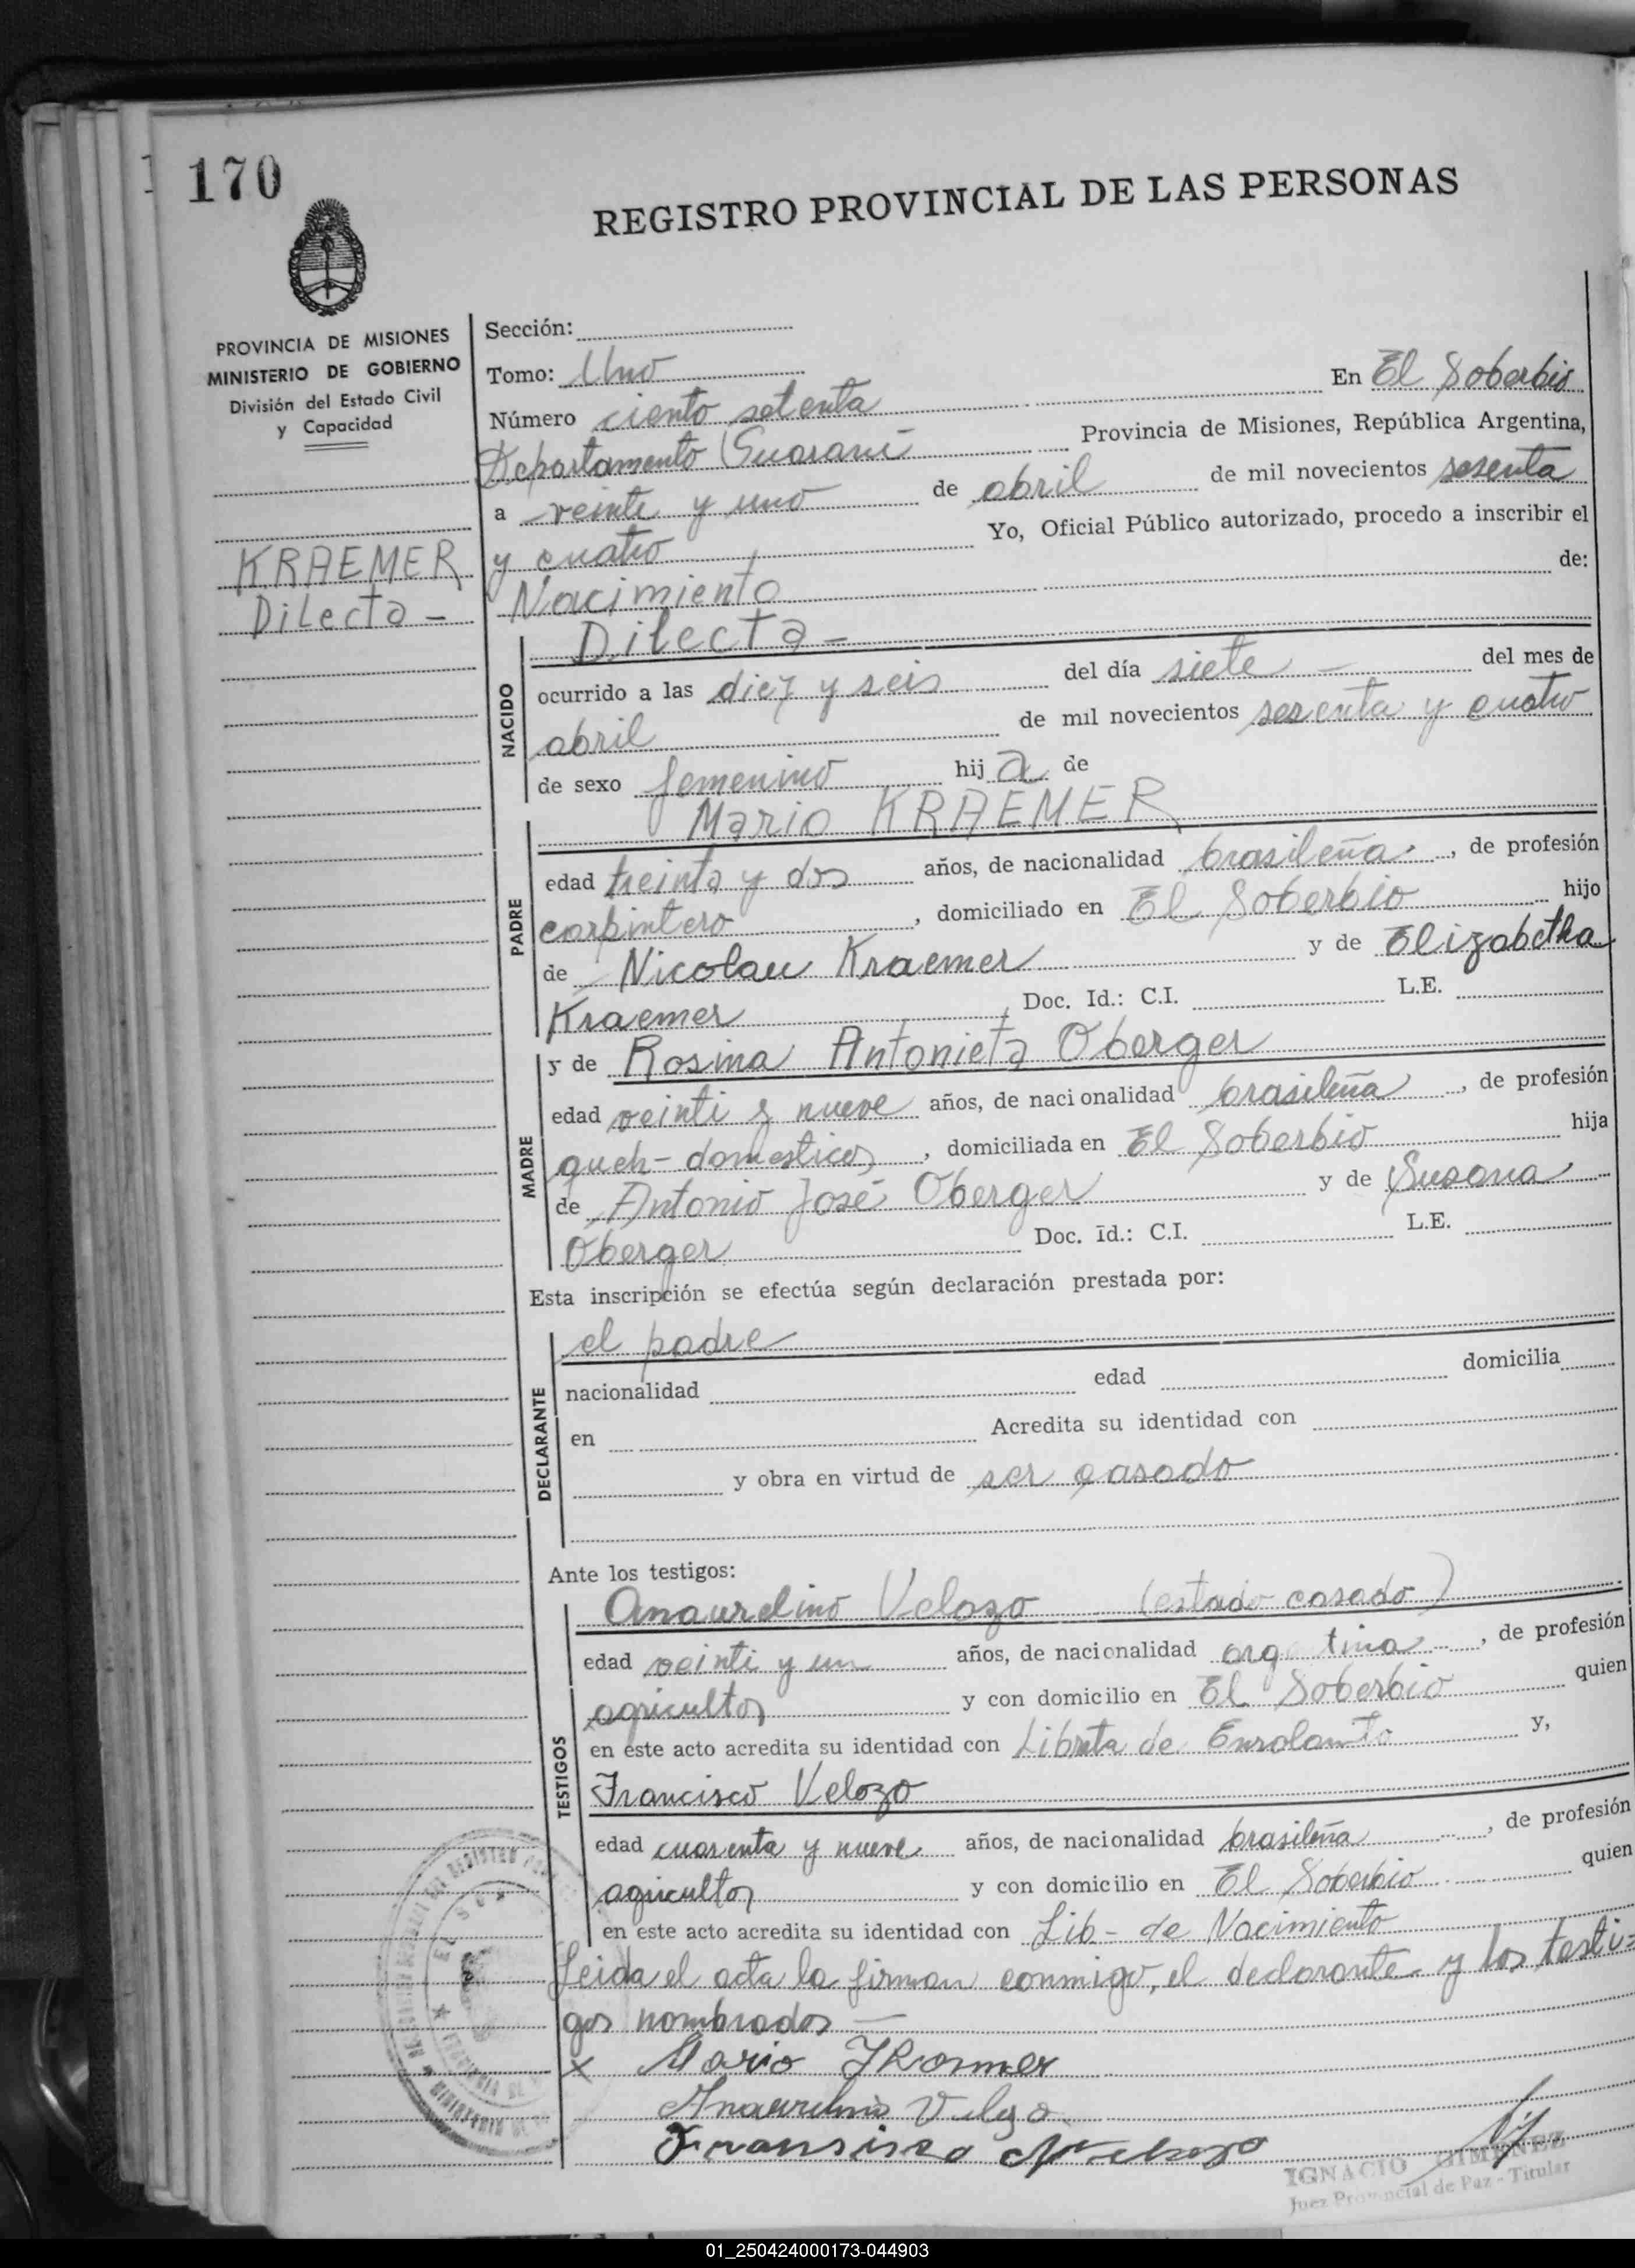 170
REGISTRO PROVINCIAL DE LAS PERSONAS
PROVINCIA DE MISIONES
MINISTERIO DE GOBIERNO
División del Estado Civil
y Capacidad
KRAEMER
Dilecta -
Sección:
Tomo: Uno
En El Soberbio
Número ciento setenta
Departamento Guaraní Provincia de Misiones, República Argentina,
a veinte y uno de abril de mil novecientos sesenta
y cuatro Yo, Oficial Público autorizado, procedo a inscribir el
Nacimiento de:
NACIDO
Dilecta -
ocurrido a las diez y seis del día siete - del mes de
abril de mil novecientos sesenta y cuatro
de sexo femenino hija de
PADRE
Mario KRAEMER
edad treinta y dos años, de nacionalidad brasileña, de profesión
carpintero, domiciliado en El Soberbio hijo
de Nicolau Kraemer y de Elizabetha
Kraemer Doc. Id.: C.I. L.E.
MADRE
y de Rosina Antonieta Oberger
edad veinti y nueve años, de nacionalidad brasileña, de profesión
queh-domesticos, domiciliada en El Soberbio hija
de Antonio José Oberger y de Susana
Oberger Doc. Id.: C.I. L.E.
Esta inscripción se efectúa según declaración prestada por:
DECLARANTE
el padre
nacionalidad edad domicilia
en Acredita su identidad con
y obra en virtud de ser casado
Ante los testigos:
TESTIGOS
Anaurelino Velozo (estado casado)
edad veinti y un años, de nacionalidad argentina, de profesión
agricultor y con domicilio en El Soberbio quien
en este acto acredita su identidad con Libreta de Enrolamto y,
Francisco Velozo
edad cuarenta y nueve años, de nacionalidad brasileña, de profesión
agricultor y con domicilio en El Soberbio quien
en este acto acredita su identidad con Lib- de Nacimiento
Leida el acta la firman conmigo, el declarante y los testi=
gos nombrados -
x Mario
Anaurelino Velozo
Fransisco
IGNACIO GIMENEZ
Juez Provincial de Paz - Titular
01_250424000173-044903